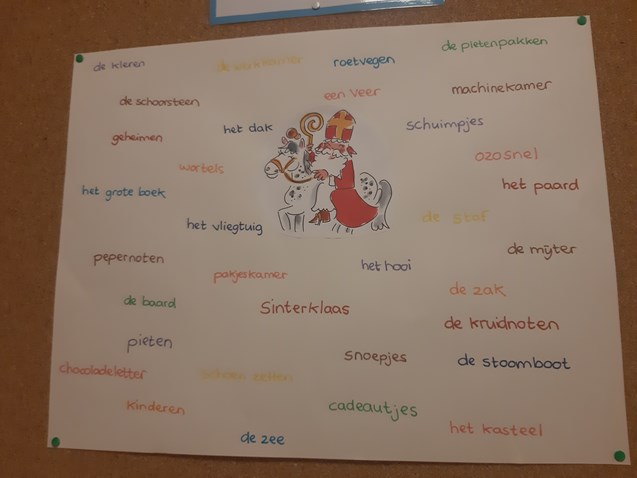 de kleren
de werkkamer
roetvegen
de pietenpakken
de schoorsteen
een veer
machinekamer
geheimen
het dak
schuimpjes
wortels
ozosnel
het grote boek
het paard
het vliegtuig
de staf
pepernoten
de mijter
pakjeskamer
het hooi
de zak
de baard
Sinterklaas
de kruidnoten
pieten
snoepjes
de stoomboot
chocoladeletter
schoen zetten
kinderen
cadeautjes
het kasteel
de zee